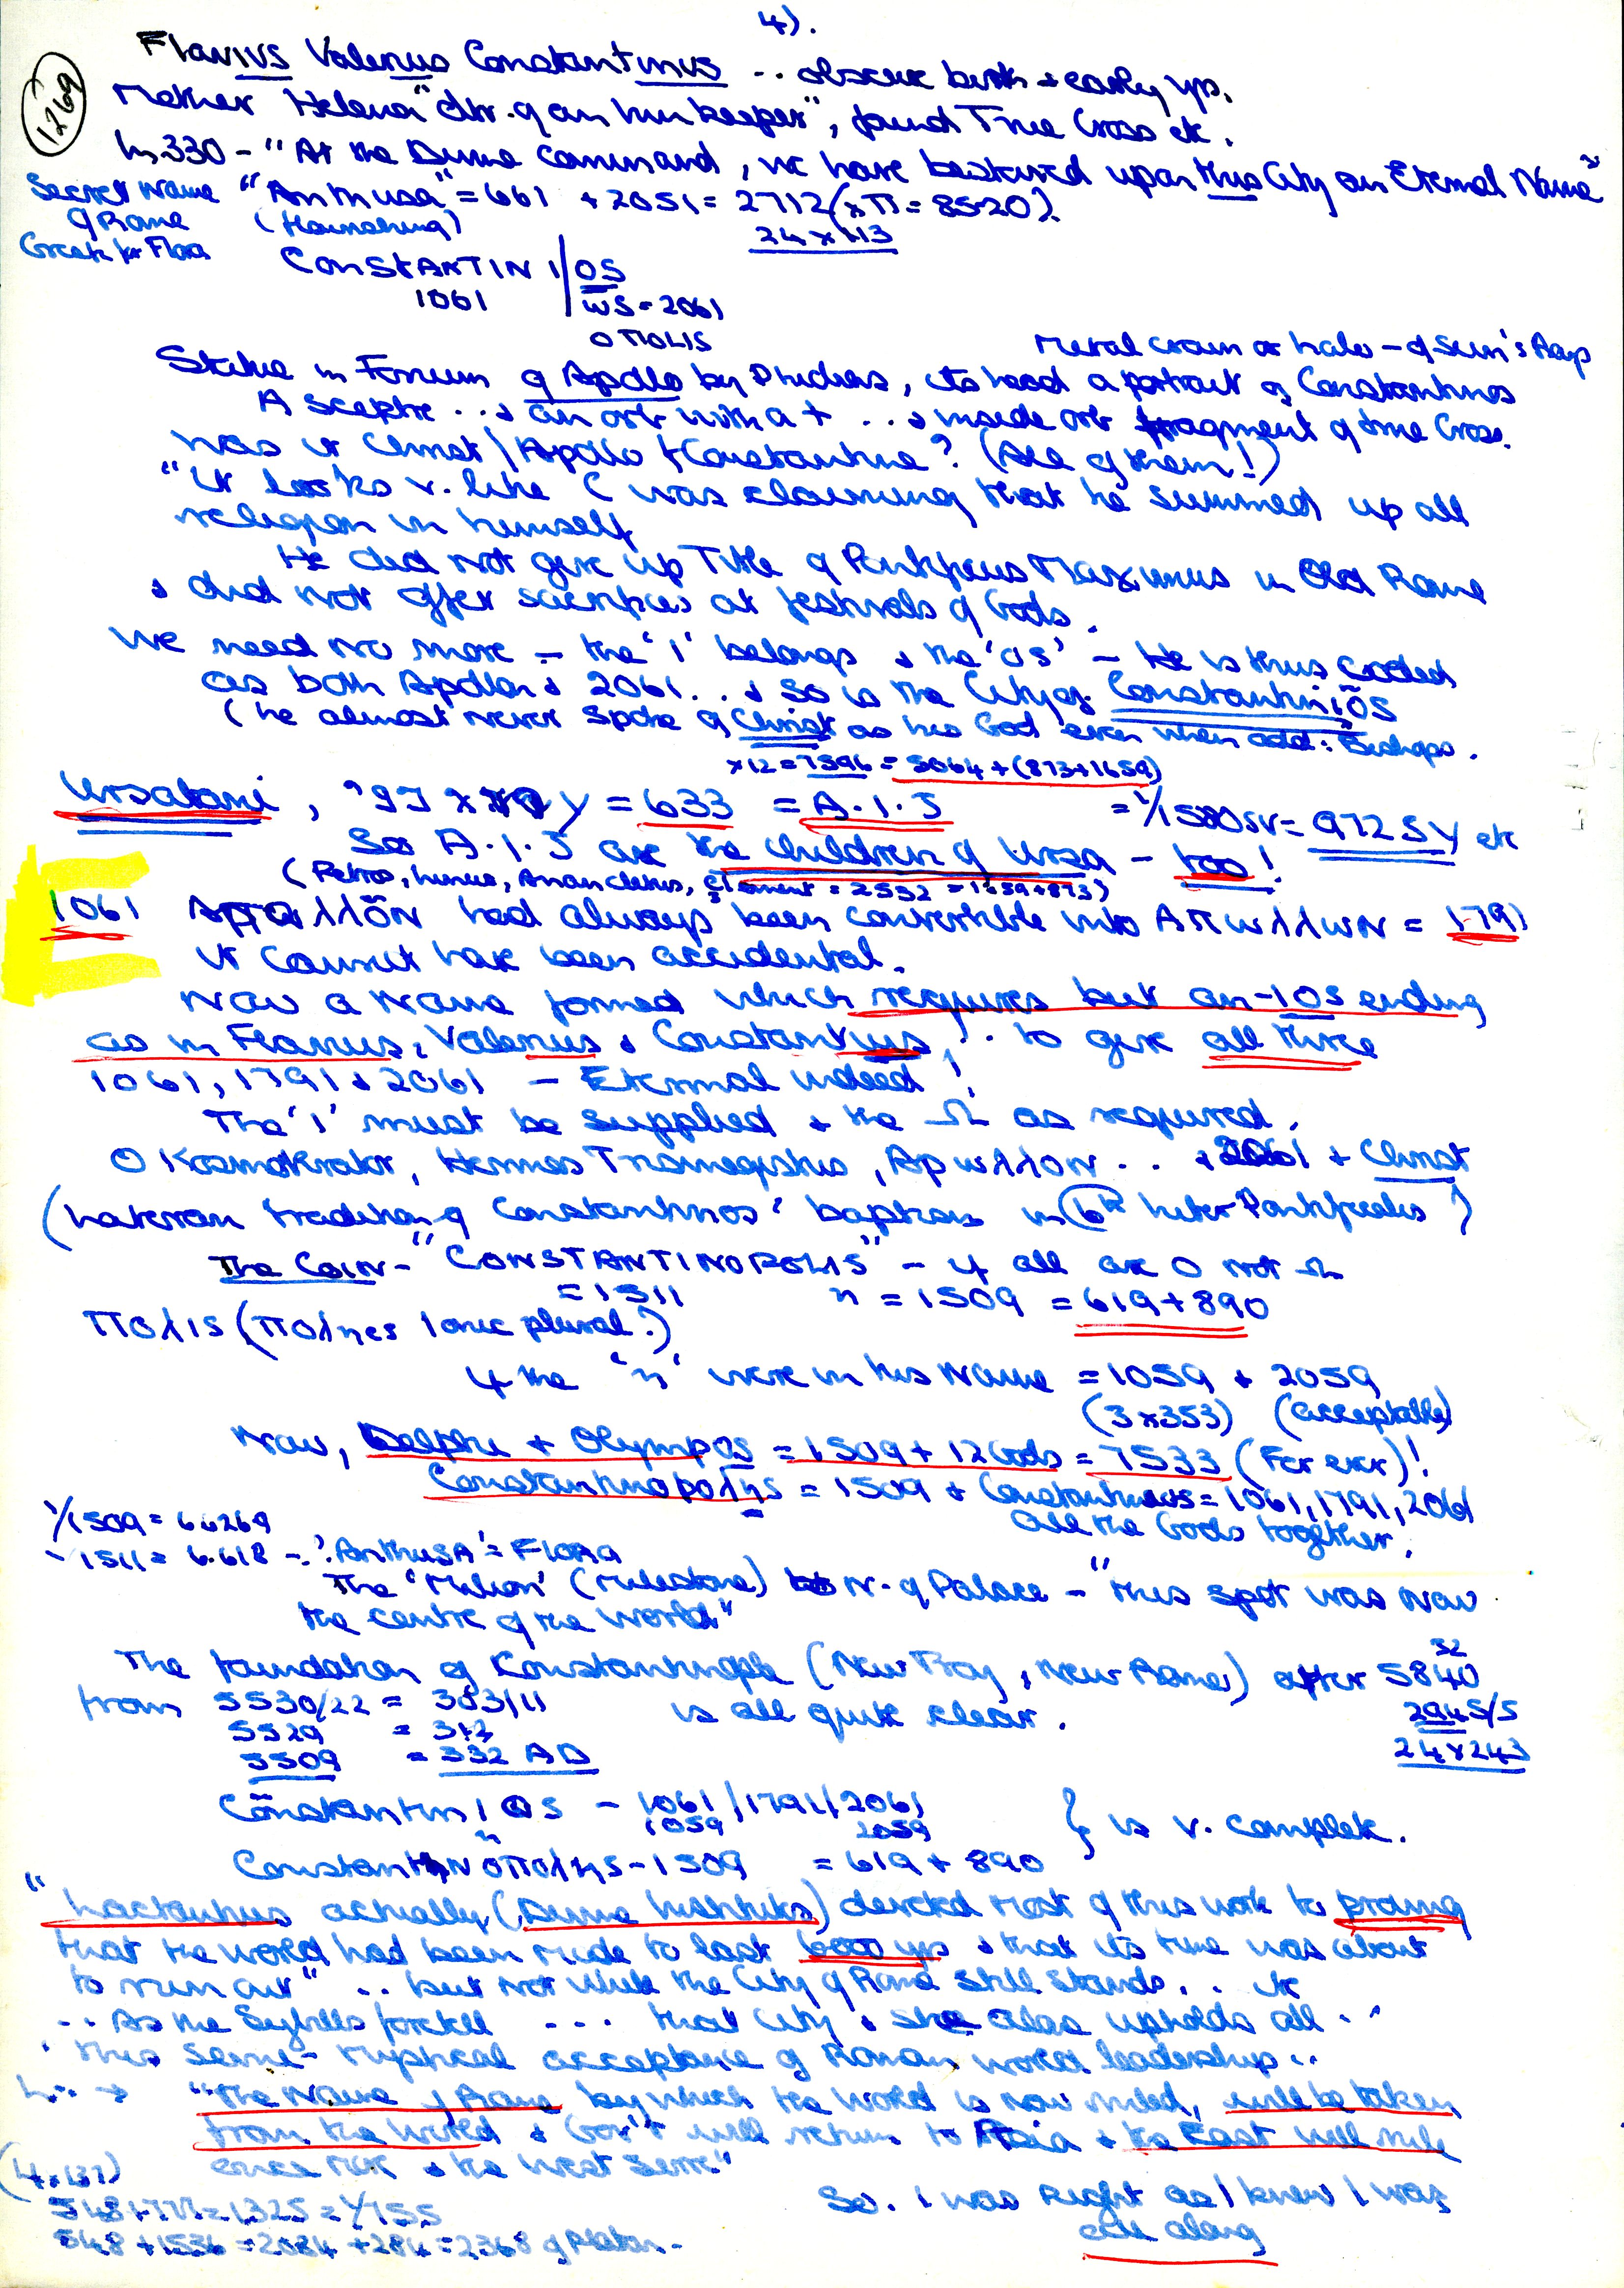 4).
1269
Flavius Valerius Constantinus .. obscure birth + early yrs.
Mother Helena "dtr. of an Inn keeper", found True Cross etc.
In 330 - "At the Divine command, we have bestowed upon this City an Eternal Name"
Secret Name "Anthusa" = 661 + 2051 = 2712 (x π = 8520).
of Rome (Flourishing) 24 x 113
Greek for Flora
CONSTANTIN I/OS
1061 ωS = 2061
O ΠOLIS
Metal crown or halo - of Sun's Rays
Statue in Forum of Apollo by Phidias, its head a portrait of Constantinos
A sceptre .. + an orb with a + .. + inside orb fragment of true Cross.
Was it Christ / Apollo / Constantine? (All of them!)
"It looks v. like C was claiming that he summed up all
religion in himself
He did not give up Title of Pontifeus Maximus in Old Rome
+ did not offer sacrifices at festivals of Gods.
We need no more - the 'i' belongs + the 'os' - He is thus coded
as both Apollo + 2061 .. + so is the City of Constantiniōs
(he almost never spoke of Christ as his God even when add: Bishops.
x12 = 7596 = 5064 + (873 + 1659)
= 633 = A.1.5 = 1/1580SV = 972 SY etc
So A.1.5 are the children of Ursa - too!
(Petros, Linus, Anancletus, Clement = 2532 = 1659 + 873)
1061 had always been convertible into ΑΠωλλωN = 1791
It cannot have been accidental.
Now a Name formed which requires but an -ios ending
as in Flavius, Valerius + Constantius .. to give all three
1061, 1791 + 2061 - Eternal indeed!
The 'i' must be supplied + the Ω as required.
O Kosmokrator, Hermes Trismegistus, Apωλλον .. + 2061 + Christ
(Lateran tradition of Constantinos' baptism in 6th Liber Pontificalis)
The Coin - "CONSTANTINOPOLIS" - if all are O not Ω
= 1511 η = 1509 = 619 + 890
Πολις (Πολησ Ionic plural?)
If the 'η' were in his Name = 1059 + 2059
(3 x 353) (acceptable)
Now, Delphi + Olympos = 1509 + 12 Gods = 7533 (For ever)!
Constantinopolης = 1509 + = 1061, 1791, 2061
All the Gods together.
1/1509 = 66269
1511 = 6.618 - 'Anthusa' = Flora
The 'Milion' (milestone) N. of Palace - "this spot was now
the centre of the World"
The foundation of Konstantinople (New Troy, New Rome) after 5840
52
from 5530/22 = 303/11 is all quite clear.
2945/5
5529 = 312
24 x 243
5509 = 332 AD
Cōnstantin i OS - 1061/1791/2061
1059 2059 } is v. complex.
η
ConstantηNοπολης - 1509 = 619 + 890
"Lactantius actually (Divine Institutes) devoted most of this work to proving
that the world had been made to last 6000 yrs + that its time was about
to run out" .. but not while the City of Rome still stands .. etc
.. As the Sybills foretell ... that City + she alone upholds all .."
' this semi-mystical acceptance of Roman world leadership ..
"The Name of Rome by which the World is now ruled, will be taken
from the World + Gov't will return to Asia + the East will rule
once more + the West serve"
(4 x 137)
548 + 777 = 1325 = 1/755
548 + 1536 = 2084 + 284 = 2368 of Platon -
So. I was Right as I knew I was
all along